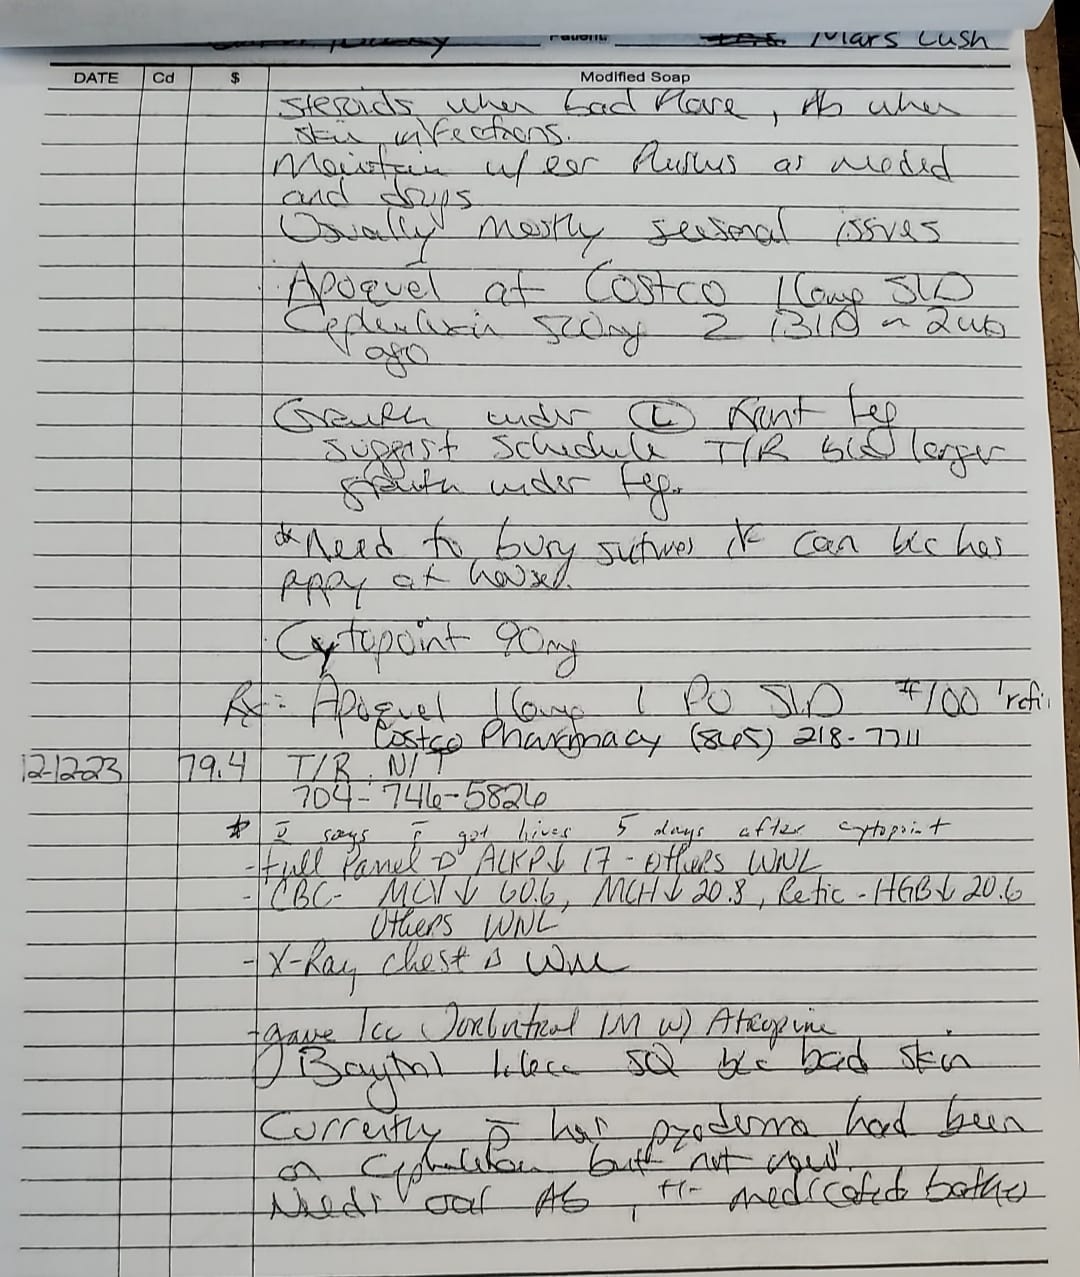 Patient: Mars Lush
DATE Cd $ Modified Soap
steroids when bad flare, Ab when
skin infections.
Maintain w/ ear flushes as needed
and drops
Usually mostly seasonal issues
Apoquel at Costco 16mg SID
Cephalexin 500mg 2 BID ~ 2wks
ago
Growth under Ⓛ front leg
suggest schedule T/R b/c larger
growth under leg.
*Need to bury sutures if can b/c has
puppy at house.
Cytopoint 90mg
Rx: Apoquel 16mg 1 PO SID #100 1refi
Costco Pharmacy (865) 218-7711
12-12-23 79.4 T/R N/T
704-746-5826
* says got hives 5 days after cytopoint
- Full Panel → ALKP↓ 17 - others WNL
- CBC- MCV↓ 60.6, MCH↓ 20.8, Retic-HGB↓ 20.6
Others WNL
- X-Ray chest WNL
- gave 1cc Torbutrol IM w) Atropine
Baytril SQ b/c bad skin
Currently p̄ has pyoderma had been
on Cephalexin but not now.
Needs oral Ab, +/- medicated baths